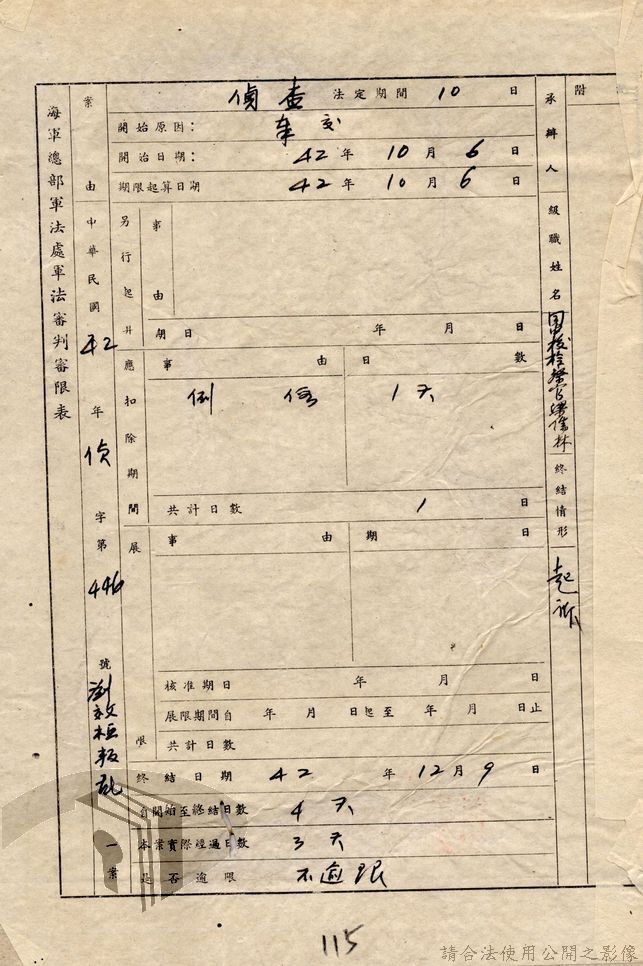 海軍總部軍法處軍法審判審限表
案由 中華民國42年偵字第446號劉效桓叛亂一案
偵查 法定期間 10 日
開始原因：奉交
開始日期：42年10月6日
期限起算日期 42年10月6日
另行起算
事由
期日 年 月 日
應扣除期間
事由 日數
例假 1天
共計日數 1 日
展限
事由 期日
核准期日 年 月 日
展限期間自 年 月 日起至 年 月 日止
共計日數
終結日期 42 年 12月9日
自開始至終結日數 4天
本案實際經過日數 3天
是否逾限 不逾限
承辦人級職姓名 軍檢察官 林
終結情形 起訴
附
115
請合法使用公開之影像